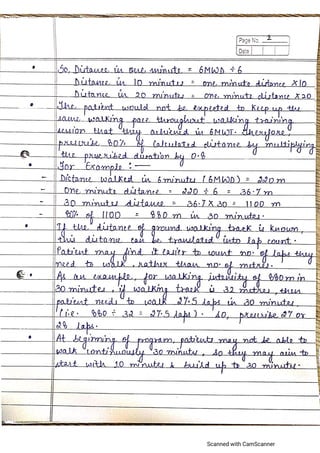 Page No. 1
Date
• So, Distance in one minute = 6MWD ÷ 6
Distance in 10 minutes = one minute distance X10
Distance in 20 minutes = one minute distance X20
• The patient would not be expected to keep up the
same walking pace throughout walking training
session that they achieved in 6MWT. Therefore,
prescribe 80% of calculated distance by multiplying
the prescribed duration by 0.8
• For Example :-
- Distance walked in 6 minutes (6MWD) = 220m
- One minute distance = 220 ÷ 6 = 36.7m
- 30 minutes distance = 36.7 X 30 = 1100 m
- 80% of 1100 = 880 m in 30 minutes.
• If the distance of ground walking track is known,
this distance can be translated into lap count.
Patient may find it easier to count no. of laps they
need to walk, rather than no. of metres.
• As an example, for walking intensity of 880m in
30 minutes, if walking track is 32 metres, then
patient needs to walk 27.5 laps in 30 minutes
(i.e. 880 ÷ 32 = 27.5 laps). So, prescribe 27 or
28 laps.
• At beginning of program, patients may not be able to
walk continuously 30 minute, so they may aim to
start with 10 minutes & build up to 30 minutes.
Scanned with CamScanner